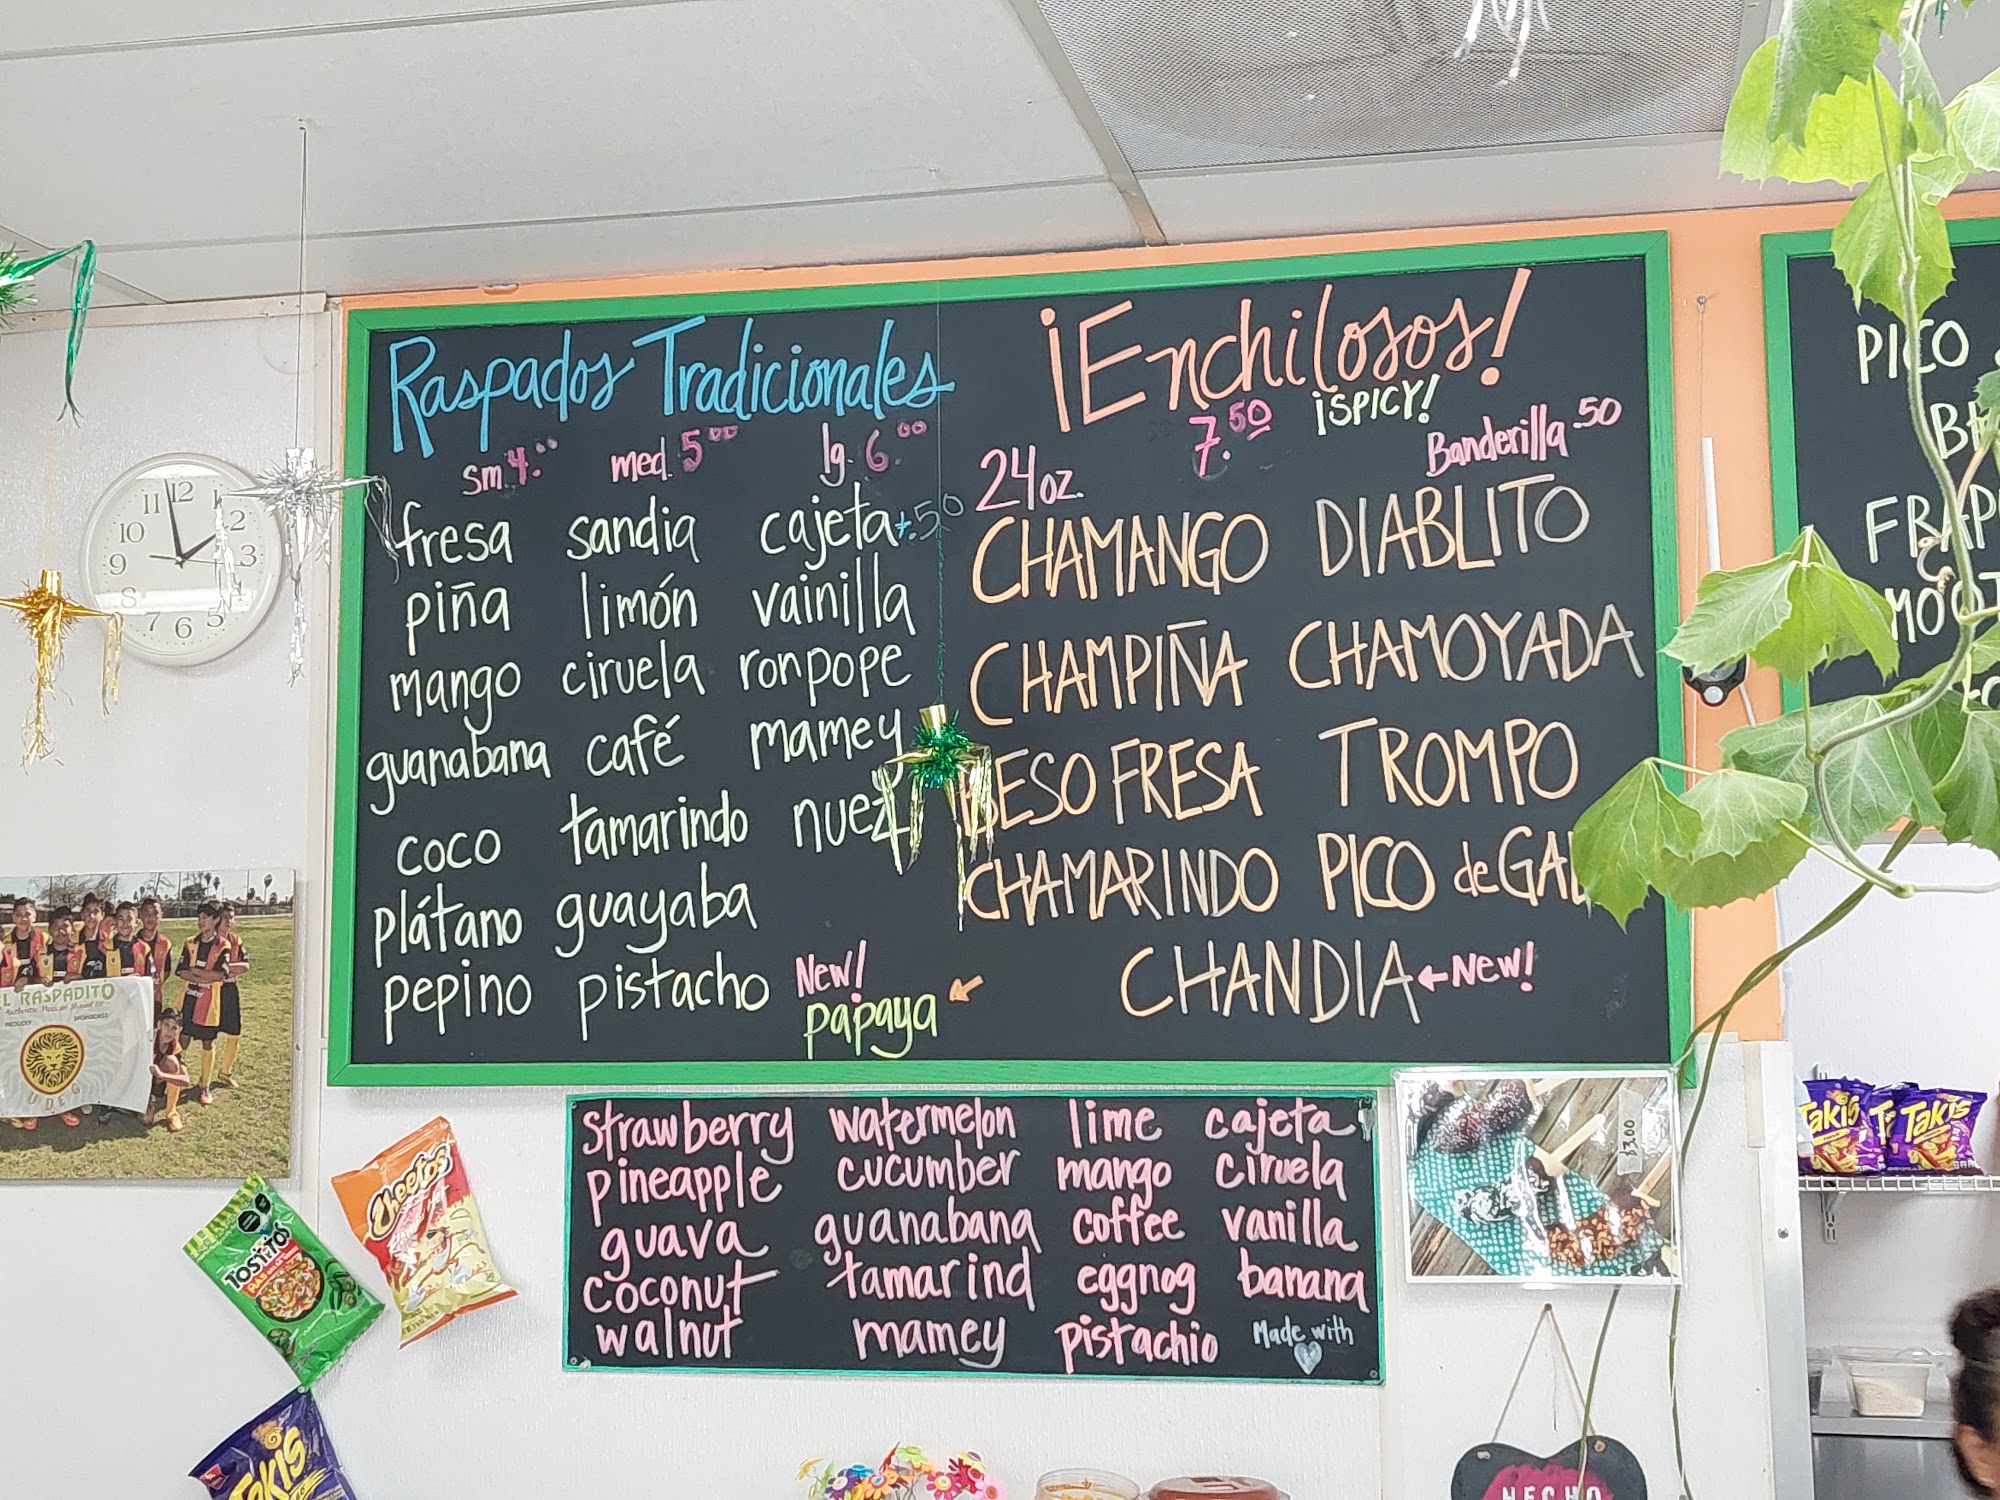 Raspados Tradicionales
sm. 4.00 med. 5.00 lg. 6.00
fresa sandia cajeta +.50
piña limón vainilla
mango ciruela ronpope
guanabana café mamey
coco tamarindo nuez
plátano guayaba
pepino pistacho New!
papaya
¡Enchilosos!
¡SPICY!
24 oz. 7.50 Banderilla .50
CHAMANGO DIABLITO
CHAMPIÑA CHAMOYADA
BESO FRESA TROMPO
CHAMARINDO PICO de
CHANDIA ← New!
PICO
strawberry watermelon lime cajeta
pineapple cucumber mango ciruela
guava guanabana coffee vanilla
coconut tamarind eggnog banana
walnut mamey pistachio Made with
12
11 1
10 2
9 3
8
7 6 5
EL RASPADITO
Authentic Mexican Shaved Ice
PROUDLY SPONSORS
U DE G
Cheetos
TOSTITOS
TAKIS
$3.00
TAKIS
TAKIS
HECHO